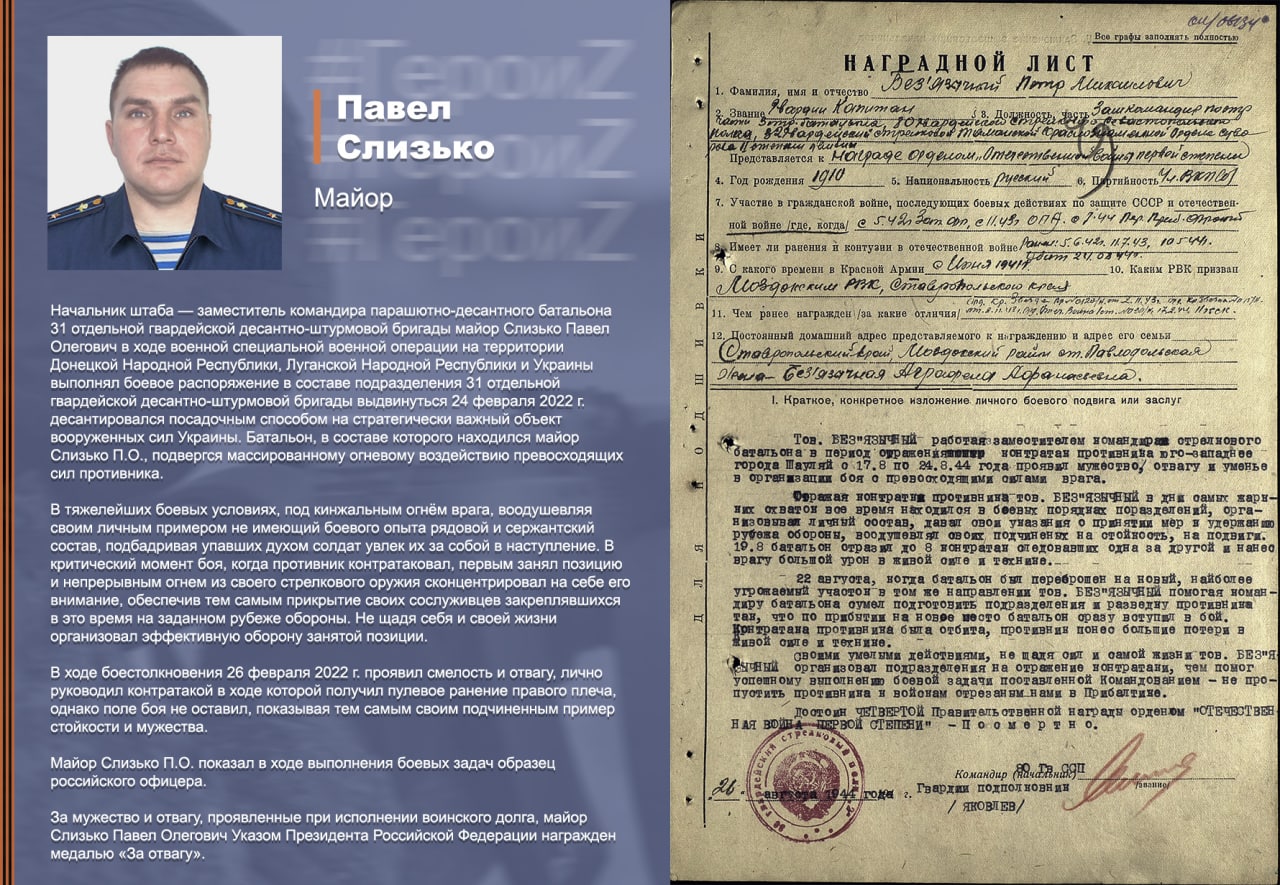 #ГероиZ
#ГероиZ
#ГероиZ
Павел
Слизько
Майор
Начальник штаба — заместитель командира парашютно-десантного батальона
31 отдельной гвардейской десантно-штурмовой бригады майор Слизько Павел
Олегович в ходе военной специальной военной операции на территории
Донецкой Народной Республики, Луганской Народной Республики и Украины
выполнял боевое распоряжение в составе подразделения 31 отдельной
гвардейской десантно-штурмовой бригады выдвинуться 24 февраля 2022 г.
десантировался посадочным способом на стратегически важный объект
вооруженных сил Украины. Батальон, в составе которого находился майор
Слизько П.О., подвергся массированному огневому воздействию превосходящих
сил противника.
В тяжелейших боевых условиях, под кинжальным огнём врага, воодушевляя
своим личным примером не имеющий боевого опыта рядовой и сержантский
состав, подбадривая упавших духом солдат увлек их за собой в наступление. В
критический момент боя, когда противник контратаковал, первым занял позицию
и непрерывным огнем из своего стрелкового оружия сконцентрировал на себе его
внимание, обеспечив тем самым прикрытие своих сослуживцев закреплявшихся
в это время на заданном рубеже обороны. Не щадя себя и своей жизни
организовал эффективную оборону занятой позиции.
В ходе боестолкновения 26 февраля 2022 г. проявил смелость и отвагу, лично
руководил контратакой в ходе которой получил пулевое ранение правого плеча,
однако поле боя не оставил, показывая тем самым своим подчиненным пример
стойкости и мужества.
Майор Слизько П.О. показал в ходе выполнения боевых задач образец
российского офицера.
За мужество и отвагу, проявленные при исполнении воинского долга, майор
Слизько Павел Олегович Указом Президента Российской Федерации награжден
медалью «За отвагу».
Все графы заполнять полностью
НАГРАДНОЙ ЛИСТ
1. Фамилия, имя и отчество Без'язычный Петр Михайлович
2. Звание Гвардии Капитан 3. Должность, часть Зам командира по
Представляется к награде орденом "Отечественной войны первой степени
4. Год рождения 1910 5. Национальность русский 6. Партийность Чл. ВКП(б)
7. Участие в гражданской войне, последующих боевых действиях по защите СССР и отечествен-
ной войне /где, когда/
8. Имеет ли ранения и контузии в отечественной войне
9. С какого времени в Красной Армии с Июня 1941 10. Каким РВК призван
Моздокским РВК, Ставропольского края
11. Чем ранее награжден /за какие отличия/
12. Постоянный домашний адрес представляемого к награждению и адрес его семьи
Ставропольский край Моздокский район ст. Павлодольская
Жена - Безъязычная
ДЛЯ ПОДШИВКИ
I. Краткое, конкретное изложение личного боевого подвига или заслуг
Тов. БЕЗ"ЯЗЫЧНЫЙ работая заместителем командира стрелкового
батальона в период отражения контратак противника юго-западнее
города Шауляй с 17.8 по 24.8.44 года проявил мужество, отвагу и уменье
в организации боя с превосходящими силами врага.
Отражая контратаки противника тов. БЕЗ"ЯЗЫЧНЫЙ в дни самых жарк-
их схваток все время находился в боевых порядках поразделений, орга-
низовывал личный состав, давал свои указания о принятии мер к удержанию
рубежа обороны, воодушевлял своих подчиненых на стойкость, на подвиги.
19.8 батальон отразил до 8 контратак следовавших одна за другой и нанес
врагу большой урон в живой силе и технике.
22 августа, когда батальон был переброшен на новый, наиболее
угрожаемый участок в том же направлении тов. БЕЗ"ЯЗЫЧНЫЙ помогая коман-
диру батальона сумел подготовить подразделения и разведку противника
так, что по прибытии на новое место батальон сразу вступил в бой.
Контратака противника была отбита, противник понес большие потери в
живой силе и технике.
Своими умелыми действиями, не щадя сил и самой жизни тов. БЕЗ"Я-
ЗЫЧНЫЙ организовал подразделения на отражение контратаки, чем помог
успешному выполнению боевой задачи поставленной Командованием - не про-
пустить противника к войскам отрезанным нами в Прибалтике.
Достоин ЧЕТВЕРТОЙ Правительственной награды орденом "ОТЕЧЕСТВЕН-
НАЯ ВОЙНА ПЕРВОЙ СТЕПЕНИ" - Посмертно.
80 Гв ССП
Командир (начальник)
"26" августа 1944 года г. Гвардии подполковник /звание/
/ ЯКОВЛЕВ/